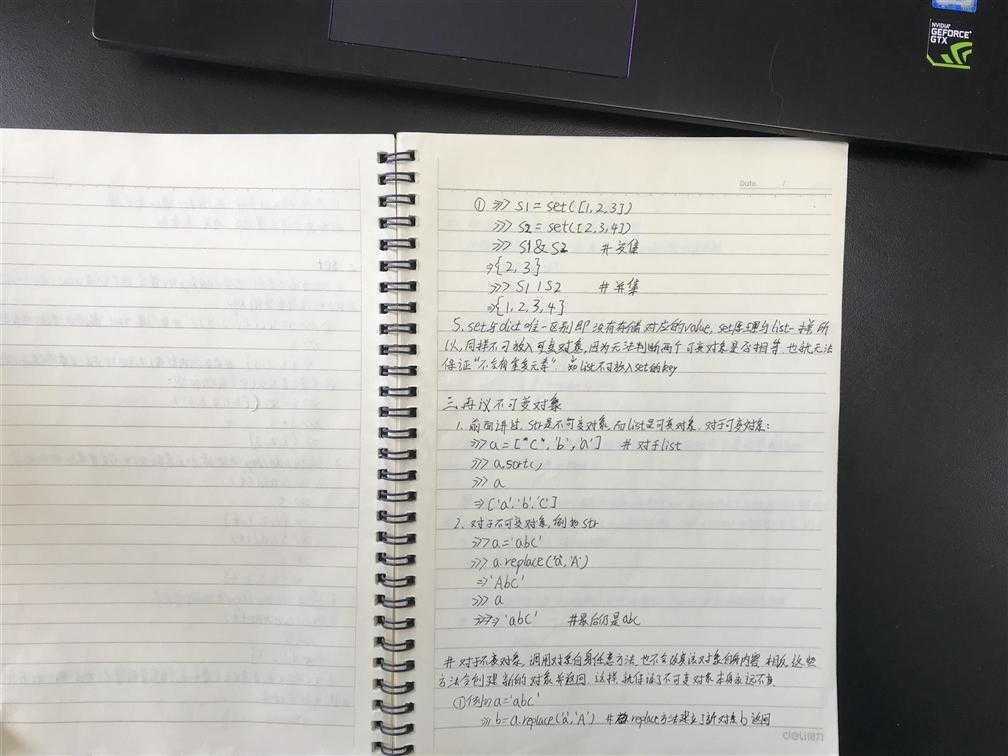 NVIDIA
GEFORCE
GTX
Date /
① >>> S1 = set([1,2,3])
>>> S2 = set([2,3,4])
>>> S1 & S2 #交集
⇒{2,3}
>>> S1 | S2 #并集
⇒{1,2,3,4}
5. set与dict唯一区别即没有存储对应的value, set原理与list一样所
以,同样不可放入可变对象,因为无法判断两个可变对象是否相等 也就无法
保证“不会有重复元素”. 如list不可放入set的key
三.再议不可变对象
1. 前面讲过, str是不可变对象,而list是可变对象. 对于可变对象:
>>> a = ["c", 'b', 'a'] # 对于list
>>> a.sort()
>>> a
⇒ ['a', 'b', 'c']
2. 对于不可变对象,例如str
>>> a = 'abc'
>>> a.replace('a','A')
⇒ 'Abc'
>>> a
⇒ 'abc' #最后仍是abc
# 对于不变对象,调用对象自身任意方法,也不会改变该对象自身内容 相反,这些
方法会创建新的对象并返回,这样,就保证了不可变对象本身永远不可变
①例如 a = 'abc'
>>> b = a.replace('a','A') # replace方法建立了新对象b返回
deli得力